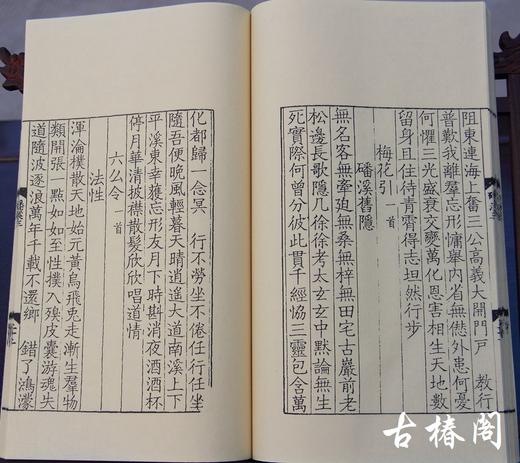 阻東連海上奮三公高義大開門戸　教行
普歎我離羣忘形慵舉内省無愆外患何憂
何懼三光盛衰交變萬化恩害相生天地數
留身且住待青霄得志坦然行步
梅花引　一首
磻溪舊隱
無名客無牽迤無桑無梓無田宅古巖前老
松邊長歌隱几徐徐考太玄玄中默論無生
死實際何曾分彼此貫千經恊三靈包含萬
化都歸一念冥　行不勞坐不倦任行任坐
隨吾便晚風輕暮天晴逍遙大道南溪上下
平溪東幸㕠忘形友月下時斟消夜酒酒杯
停月華清披襟散髮欣欣唱道情
六幺令　一首
法性
渾淪樸散天地始元黄烏飛兎走漸生羣物
類開張一點如如至性撲入臭皮囊游魂失
道隨波逐浪萬年千載不還鄉　錯了鴻濛
古椿阁